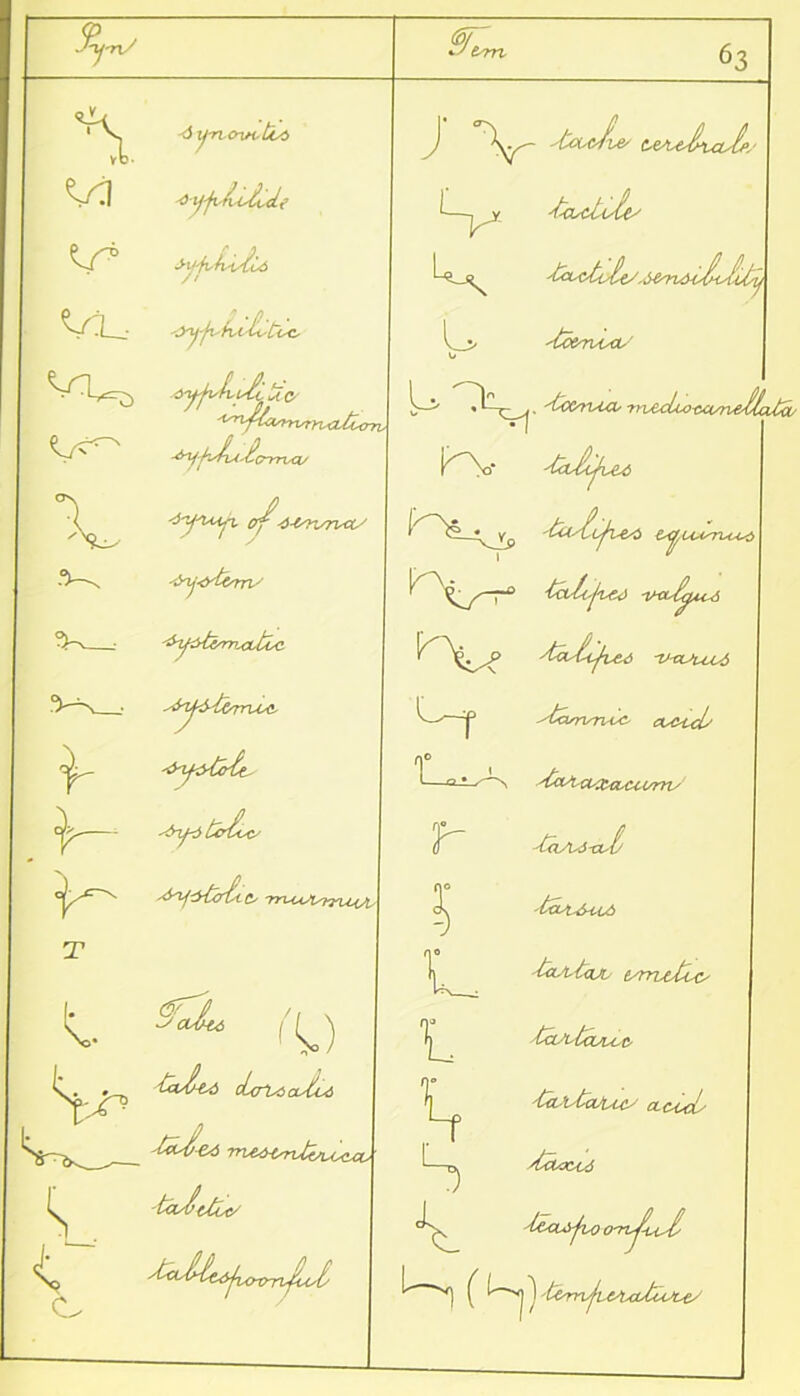 Syn
synovitis
syphilide
syphilis
syphilitic
syphilitic
inflammation
syphiloma
syrup of senna
system
systematic
systemic
systole
systolic
systolic murmur
T
Tabes
tabes dorsalis
tabes mesenterica
tabetic
tablespoonful
Tem
63
tache cerebrale
tactile
tactile sensibility
taenia
taenia mediocanellata
talipes
talipes equinus
talipes valgus
talipes varus
tannic acid
taraxacum
tarsal
tarsus
tartar emetic
tartaric
tartaric acid
taxis
teaspoonful
temperature